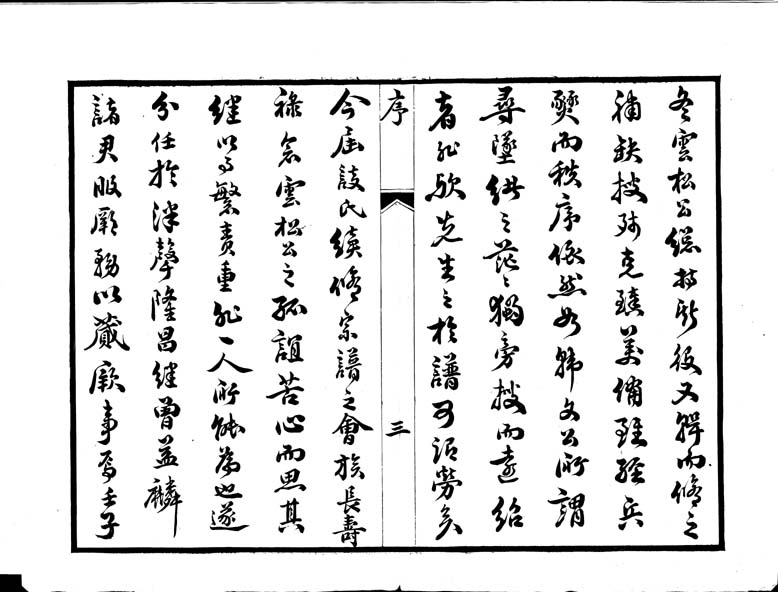 冬雲松公總持斯役又殫而脩之
補缺披殘克臻美備雖經兵
燹而秩序依然如韓文公所謂
尋墜緒之茫茫獨旁搜而遠紹
者非歟先生之於譜可謂勞矣
序
三
今届談氏續脩宗譜之會族長壽
祿念雲松公之孤詣苦心而思其
繼以事繁責重非一人所能為也遂
分任於泮聲隆昌繼曾益麟
諸君服厥務以蕆厥事焉壬子